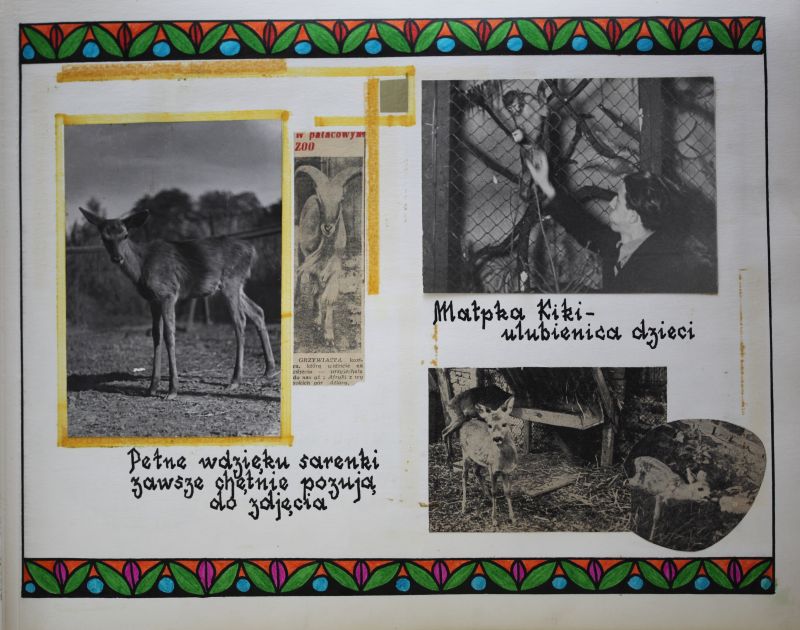 w pałacowym
ZOO
GRZYWIASTA
Pełne wdzięku sarenki
zawsze chętnie pozują
do zdjęcia
Małpka Kiki-
ulubienica dzieci